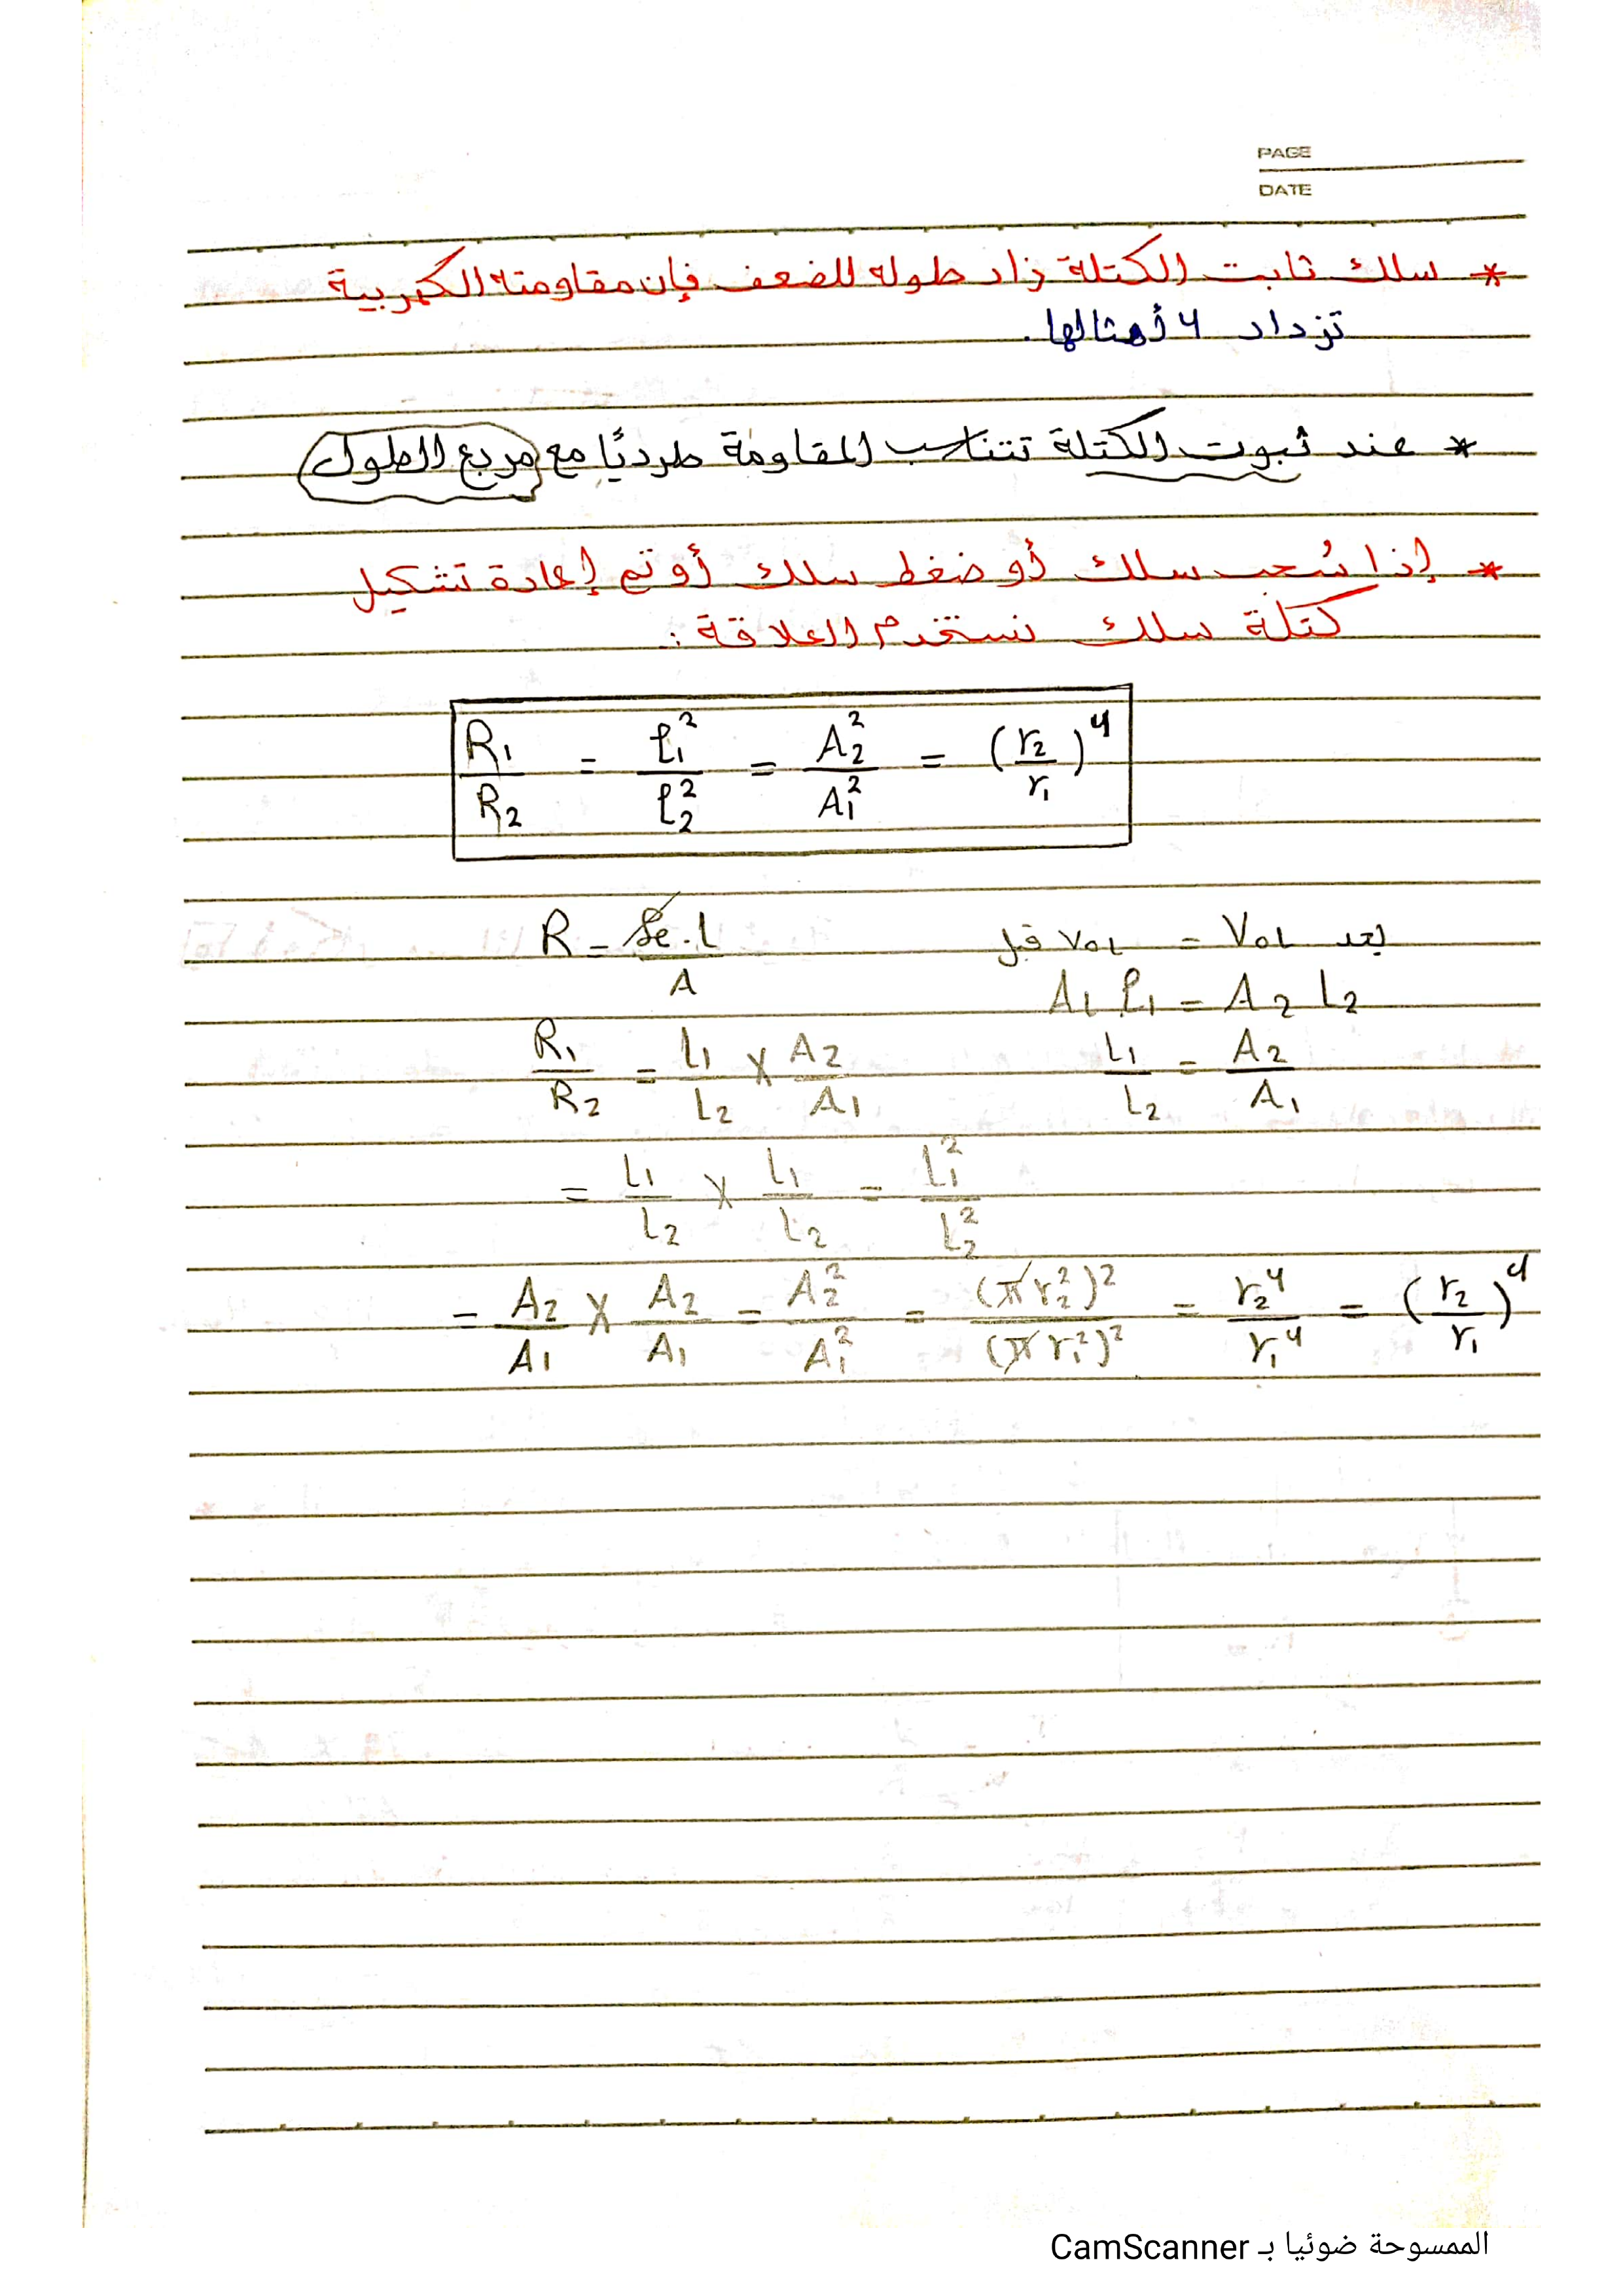 PAGE
DATE
* سلك ثابت الكتلة زاد طوله للضعف فإن مقاومته الكهربية
تزداد 4 أمثالها.
* عند ثبوت الكتلة تتناسب المقاومة طرديًا مع مربع الطول
* إذا سُحب سلك أو ضغط سلك أو تم إعادة تشكيل
كتلة سلك نستخدم العلاقة :
R₁/R₂ = ℓ₁²/ℓ₂² = A₂²/A₁² = (r₂/r₁)⁴
R = ρe.L/A
قبل VoL = VoL بعد
A₁ ℓ₁ = A₂ L₂
R₁/R₂ = L₁/L₂ × A₂/A₁
L₁/L₂ = A₂/A₁
= L₁/L₂ × L₁/L₂ = L₁²/L₂²
= A₂/A₁ × A₂/A₁ = A₂²/A₁² = (πr₂²)²/(πr₁²)² = r₂⁴/r₁⁴ = (r₂/r₁)⁴
الممسوحة ضوئيا بـ CamScanner